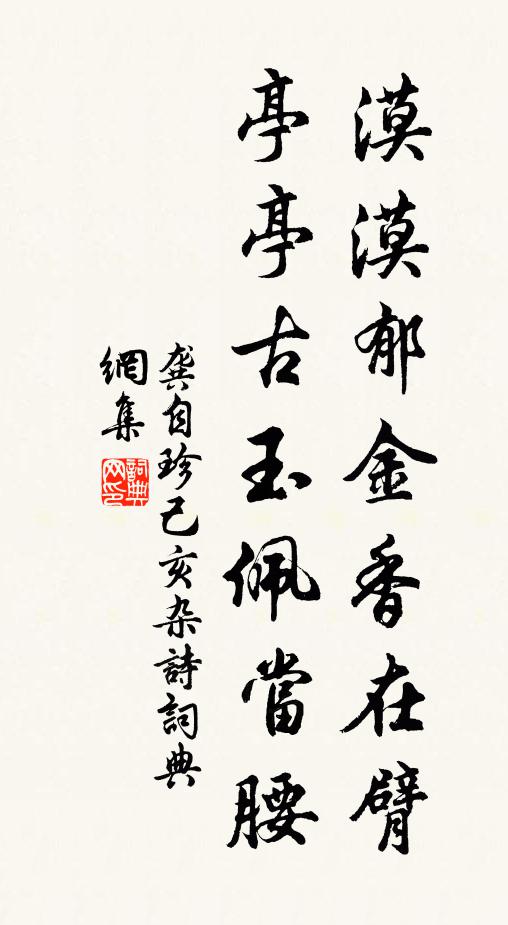 漠漠郁金香在臂
亭亭古玉佩當腰
龔自珍己亥杂詩詞典
網集
詞典网印